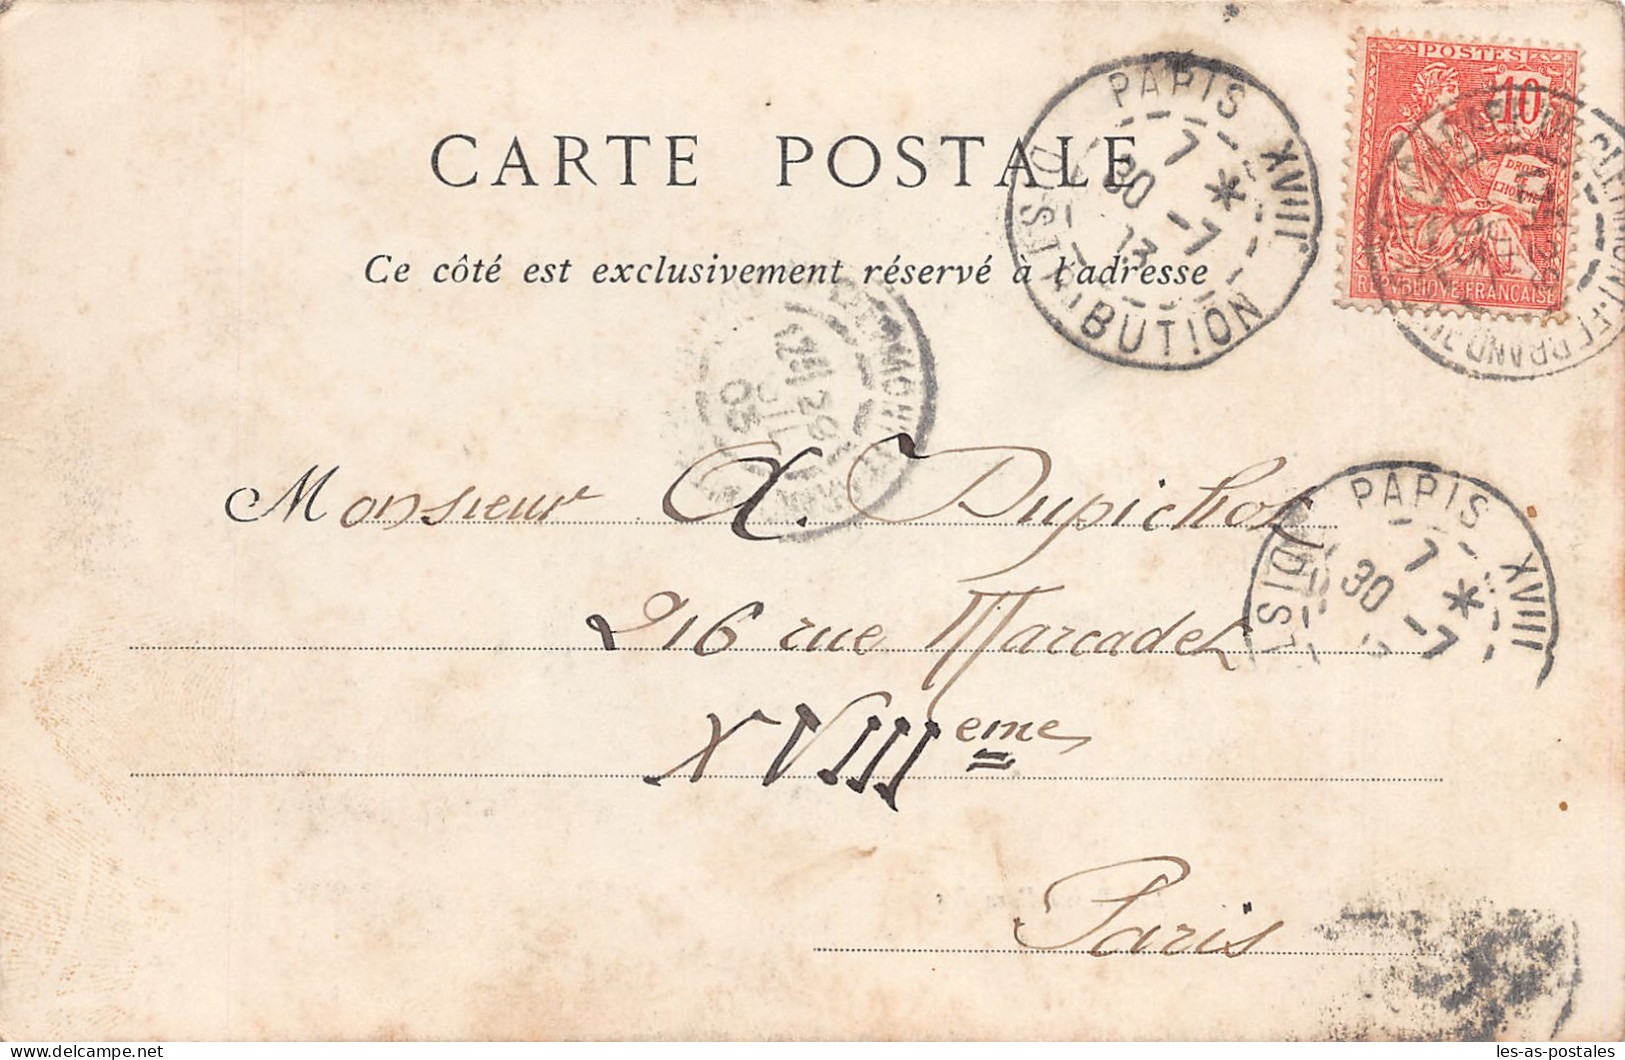 POSTES
10
DROITS
DE
L'HOMME
REPUBLIQUE FRANÇAISE
PARIS XVIII
7 *
30 -7
DISTRIBUTION
CARTE POSTALE
Ce côté est exclusivement réservé à l'adresse
29
JUIL
03
Monsieur A. Dupichot
PARIS XVIII
7 *
30 -7
DIST
216 rue Marcadet
XVIIIeme
Paris
les-as-postales
www.delcampe.net